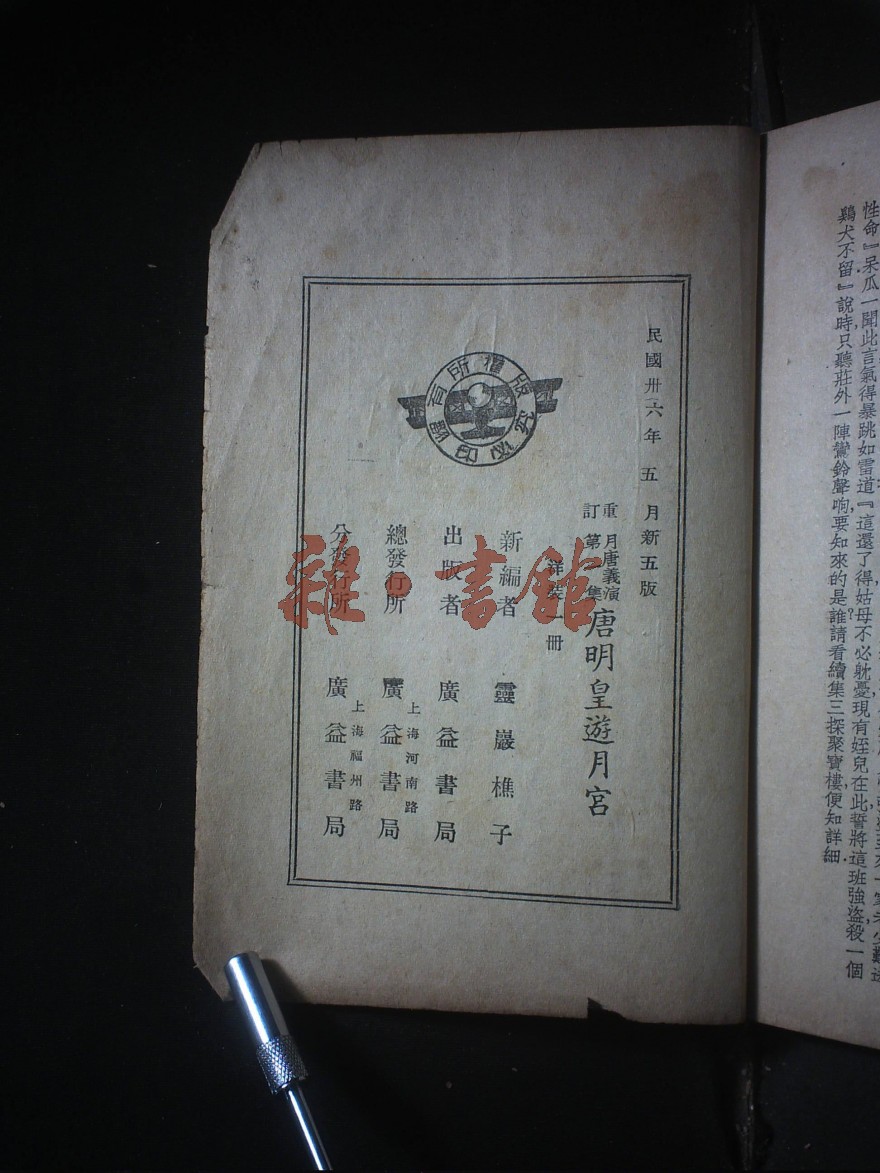 性命』呆瓜一聞此言氣得暴跳如雷道『這還了得姑母不必躭憂現有姪兒在此誓將這班強盜殺一個
鷄犬不留』說時只聽莊外一陣鸞鈴聲响要知來的是誰請看續集三探聚寶樓便知詳細.
民國卅六年五月新五版
重訂
月唐義演
第 集
唐明皇遊月宮
洋裝一冊
新編者 靈巖樵子
出版者 廣益書局
上海河南路
總發行所 廣益書局
上海福州路
分發行所 廣益書局
版權所有
翻印必究
雜·書館